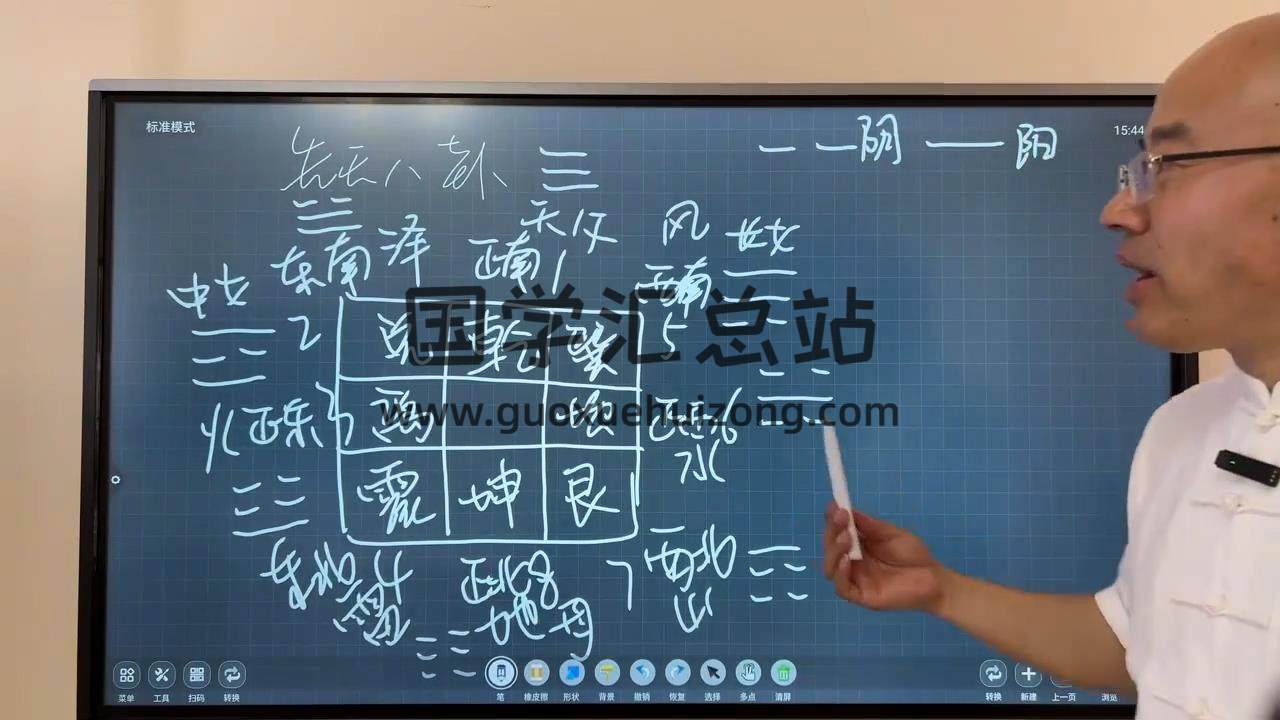 标准模式
15:44
阴 阳
先天八卦
天父
风
长女
东南 泽
正南 1
西南
中女
2
兑 乾 巽
5
国学汇总站
www.guoxuehuizong.com
火 正东 3
离 坎
正西 6
水
震 坤 艮
东北 4
雷
正北 8
地母
7
西北
山
菜单 工具 扫码 转换
笔 橡皮擦 形状 背景 撤销 恢复 选择 多点 清屏
转换 新建 上一页 浏览